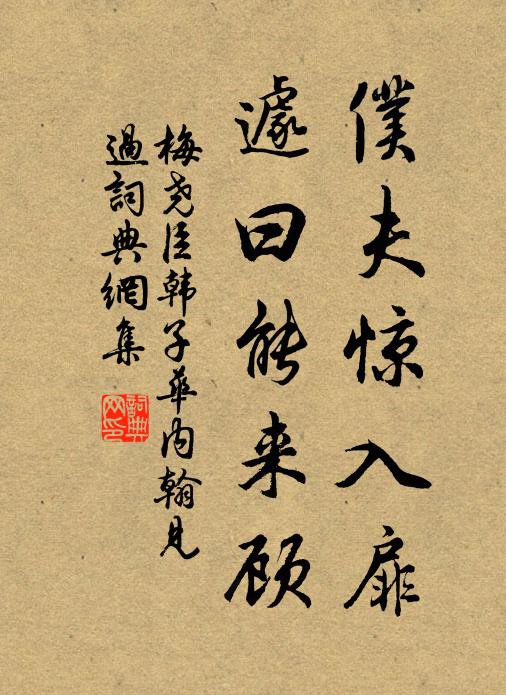 僕夫惊入扉
遽曰能来顾
梅尧臣韩子华内翰见
過詞典網集
詞典网印